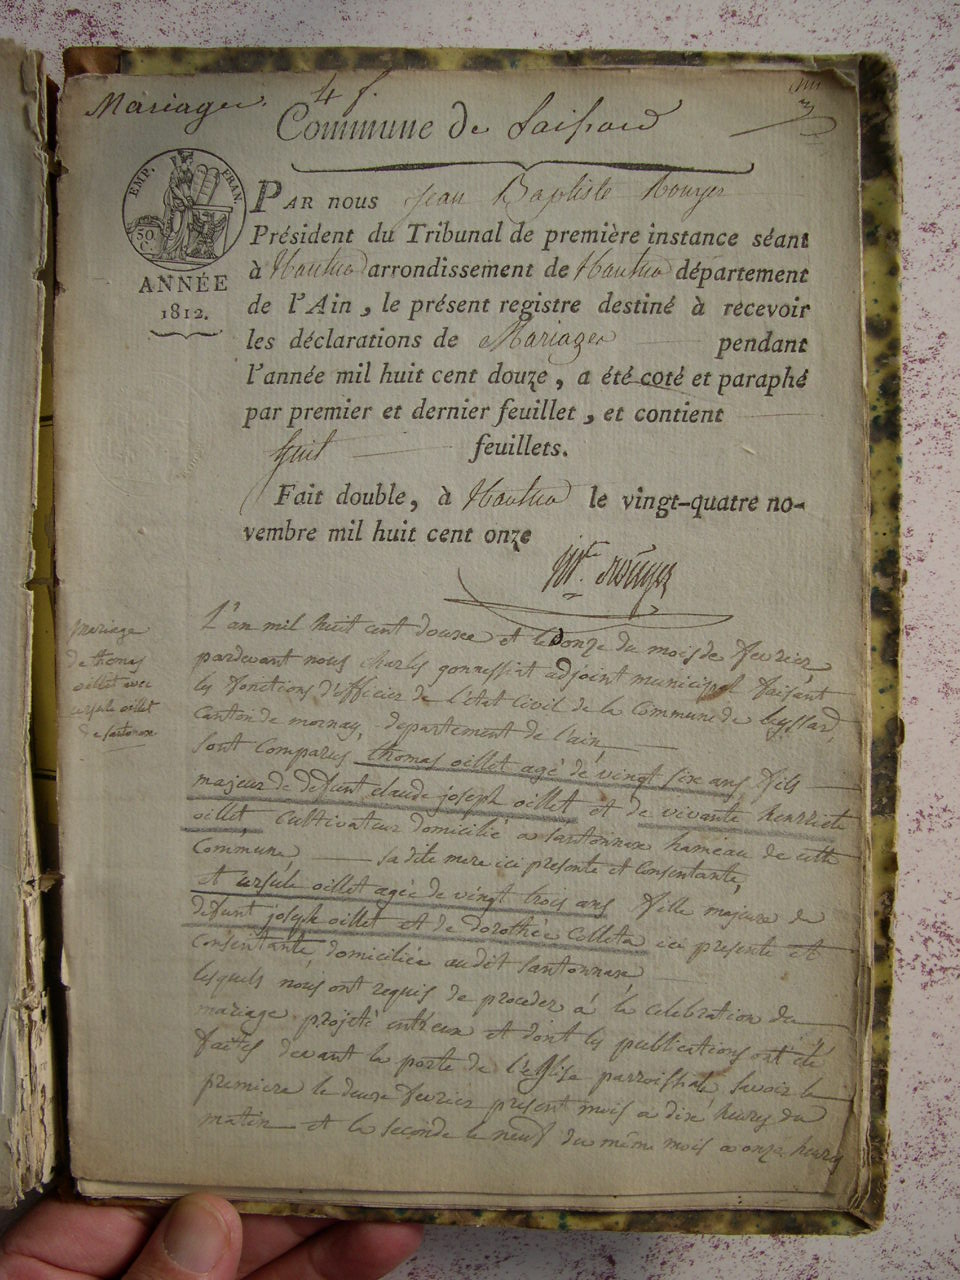 Mariages. 4 f.
Commune de Leissard
EMP. FRAN.
50 C.
ANNÉE
1812.
PAR NOUS Jean Baptiste Rouyer
Président du Tribunal de première instance séant
à Nantua arrondissement de Nantua département
de l'Ain, le présent registre destiné à recevoir
les déclarations de Mariages pendant
l'année mil huit cent douze, a été coté et paraphé
par premier et dernier feuillet, et contient
huit feuillets.
Fait double, à Nantua le vingt-quatre no-
vembre mil huit cent onze
Mariage
de thomas
oillet avec
ursule oillet
de santonnax
L'an mil huit cent douze et le onze du mois de fevrier
pardevant nous charles gonnessiat adjoint municipal faisant
les fonctions d'officier de l'état civil de la Commune de leyssard
canton de mornay, departement de l'ain,
sont comparus thomas oillet agé de vingt sixe ans fils
majeur de defunt claude joseph oillet et de vivante henriete
oillet cultivateur domicilié a santonnax hameau de cette
Commune, sa dite mere ici presente et consentante,
et ursule oillet agée de vingt trois ans fille majeure de
defunt joseph oillet et de dorothée Colleta ici presente et
consentante, domiciliée audit santonnax
lesquels nous ont requis de proceder á la celebration du
mariage projeté entr'eux et dont les publications ont été
faites devant la porte de l'eglise parroissiale, savoir la
premiere le deuxe fevrier present mois a dix heures du
matin et la seconde le neuf du même mois a onze heures